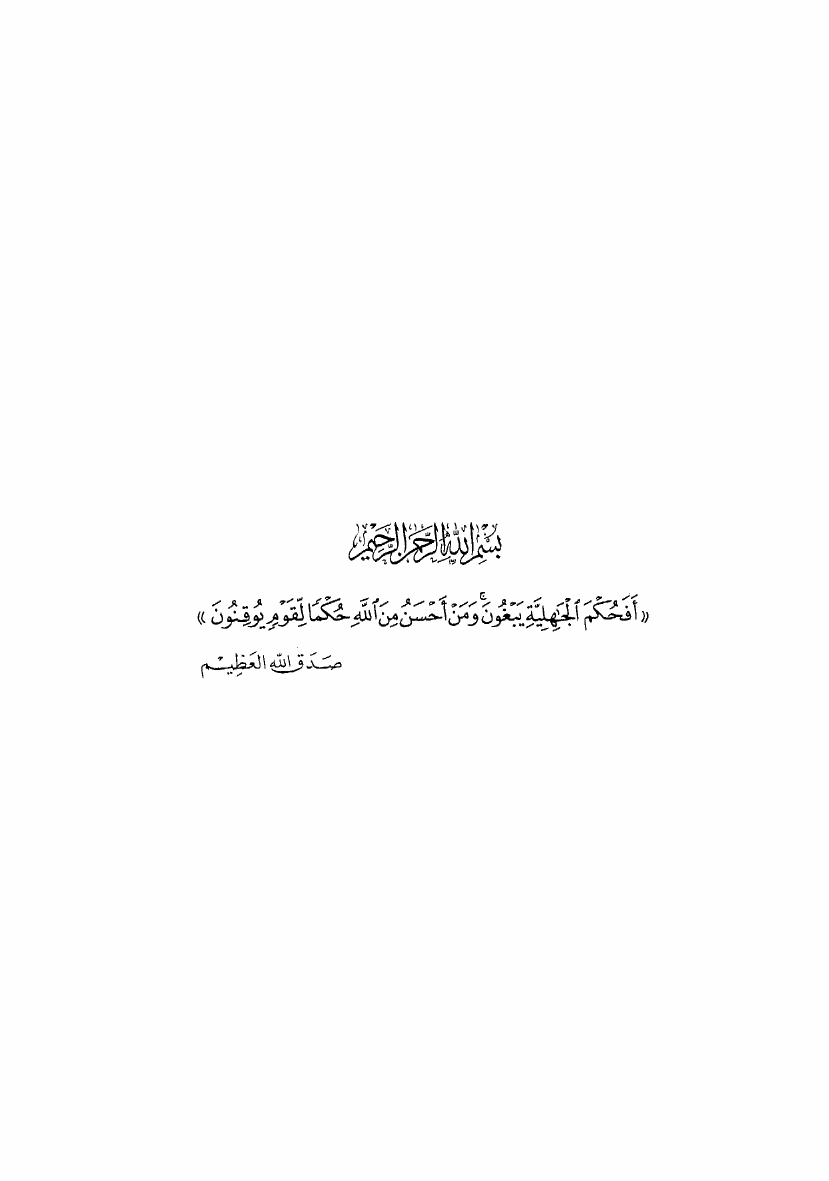 بِسْمِ اللَّهِ الرَّحْمَنِ الرَّحِيمِ
« أَفَحُكْمَ ٱلْجَٰهِلِيَّةِ يَبْغُونَۚ وَمَنْ أَحْسَنُ مِنَ ٱللَّهِ حُكْمًا لِّقَوْمٍ يُوقِنُونَ »
صَدَقَ اللَّه العَظِيْم